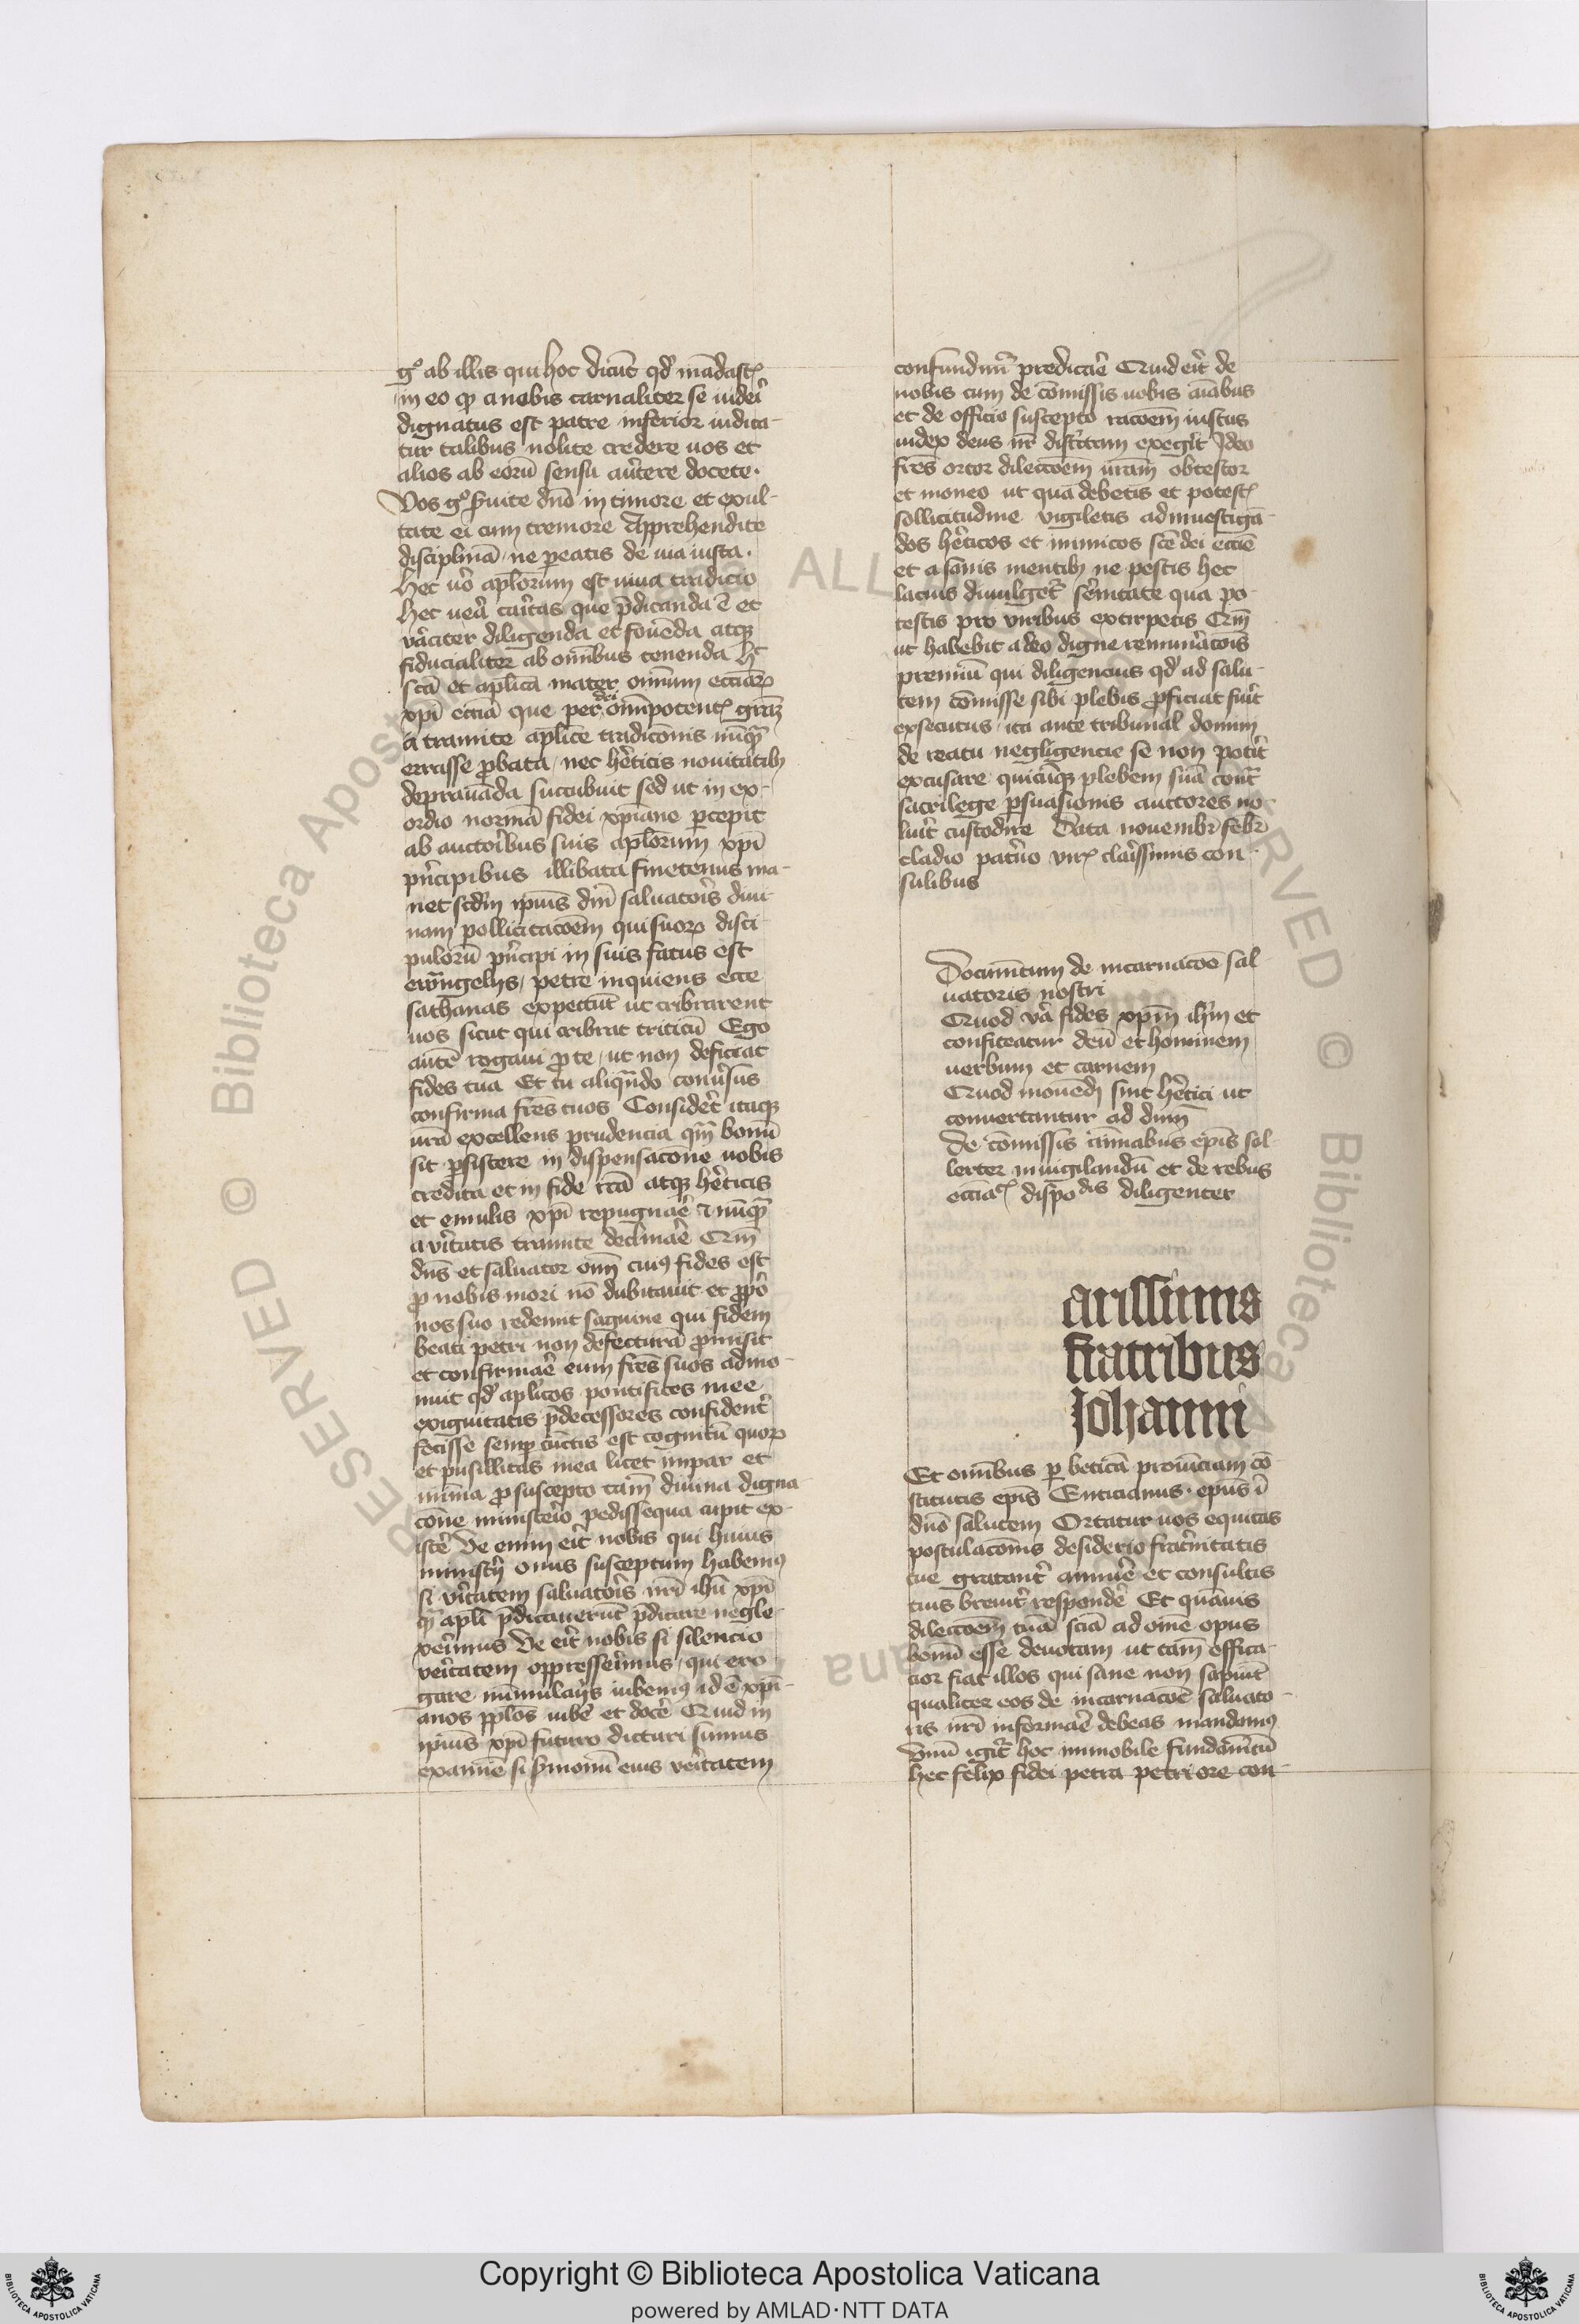 gᵒ ab illis qui hoc dicūt qd' mādastꝭ
in eo ꝙ a nobis carnaliter se uideri
dignatus est patre inferior iudica-
tur talibus nolite credere uos et
alios ab eorū sensu au̓tere docete.
Vos gᵒ ẜuite dnō in timore et exul-
tate ei cum tremore Apprehendite
disciplinā ne ꝑeatis de uia iusta.
hec uo̓ aplōrum est uiua tradicio
hec uea̓ cai̓tas que p̄dicanda ē et
va̓citer diligenda et foue̓da atqꝫ
fiducialiter ab omībus tenenda hᶜ
scā et aplīca mater omnium eccīaꝝ
xpī eccīa que per dei omīpotentꝭ grāꝫ
a tramite aplīce tradicōnis nūqᷓ
errasse ꝓbata nec he̓ticis nouitatibꝫ
deprauāda succubuit sed ut in ex-
ordio normā fidei xpīane ꝑcepit
ab auctoi̓bus suis aplōrum xpī
pn̓cipibus illibata finetenus ma-
net scdm̄ ipius dnī saluatoi̓s diui
nam pollicitacōem qui suoꝝ disci-
pulorū pn̓cipi in suis fatus est
ewᷓngelijs petre inquiens ecce
sathanas expectiūt ut cribrarent
uos sicut qui cribrat triticū Ego
autē rogaui ꝓ te ut non deficiat
fides tua Et tu aliqᷓndo conūsus
confirma frēs tuos Conside̓t itaqꝫ
urā excellens prudencia qm̄ bonū
sit ꝑsistere in dispensacōne uobis
credita et in fide rcā atqꝫ he̓ticis
et emulis xpī repugnae̓ ⁊ nūqᷓ
a vi̓tatis tramite declinae̓ Qm̄
dn̄s et saluator om̄ cuiꝰ fides est
ꝓ nobis mori nō dubitauit et ꝓpo̓
nos suo redemit sāguine qui fidem
beati petri non defecturā ꝓmisit
et confirmae̓ eum frēs suos admo-
nuit qd' aplīcos pontifices mee
exiguitatis p̄decessores confident̓
fecisse semꝑ cūctis est cognitū quoꝝ
et pusillitas mea licet impar et
minima ꝓ suscepto tam̄ diuina digna
cōne ministei̓o pedissequa cupit ex-
iste̓ Ve enim ei̓t nobis qui huius
ministeij̓ onus susceptum habemꝰ
si vi̓tatem saluatoi̓s nrī ihū xpī
qᷓ aplī p̄dicauerūt p̄dicare negle-
xei̓mus Ve ei̓t nobis si silencio
vei̓tatem oppressei̓mus qui ero
gare nūmulaijs iubemꝰ id ē xpī-
anos pplōs iube̓ et doce̓ Quid in
ipius xpī futuro dicturi sumus
exanīe si ẜmonū eius vei̓tatem
confundim̓ predicae̓ Quid ei̓t de
nobis cum de cōmissis nobis aīabus
et de officio suscepto racōem iustus
iudex deus nr̄ distc̓tam exegi̓t Ideo
frēs ortor dileccōem uram̄ obtestor
et moneo ut quā debetis et potestꝭ
sollicitudine vigiletis ad inuestigā-
dos he̓ticos et inimicos scē dei eccīe
et a sanis mentibꝫ ne pestis hec
lacius diuulget̓ seue̓itate qua po-
testis pro viribus extirpetis Qm̄
ut habebit a deo digne remunei̓acōis
premiū qui diligencius qd' ad salu-
tem cōmisse sibi plebis ꝓficiat fui̓t
exsecutus ita ante tribunal domini
de reatu negligencie se non poti̓t
excusare quicūqꝫ plebem suā contᷓ
sacrilege ꝑsuasionis auctores no-
lui̓t custodire Data nouembr̄ febr̄
cladio patn̓o virꝭ clai̓ssimis con-
sulibus
Documētum de incarnacōe sal
uatoris nostri
Quod va̓ fides xpm̄ ihm̄ et
confiteatur deū et hominem
uerbum et carnem
Quod mouēdi sint he̓tici ut
conuertantur ad dnm̄
De cōmissis aīmabus epīs sol-
lerter inuigilandū et de rebus
eccīaꝭ dispo dis diligenter
arissimis
fratribus
Johanni
Et omībus ꝑ beticā prouīnciam cō-
stitutis epīs Euticianus epūs ī
dnō salutem Ortatur uos equitas
postulacōnis desiderio fratn̓itatis
tue gratant̓ annue̓ et consultis
tuis breuit̓ responde̓ Et quāuis
dileccōem tuā sciā ad om̄e opus
bonū esse deuotam ut tam̄ effica-
cior fiat illos qui sane non sapiūt
qualiter eos de incarnacōe saluato-
ris nrī informae̓ debeas mandamꝰ
Vnū igit̓ hoc immobile fundamētū
hec felix fidei petra petri ore con-
Copyright © Biblioteca Apostolica Vaticana
powered by AMLAD·NTT DATA